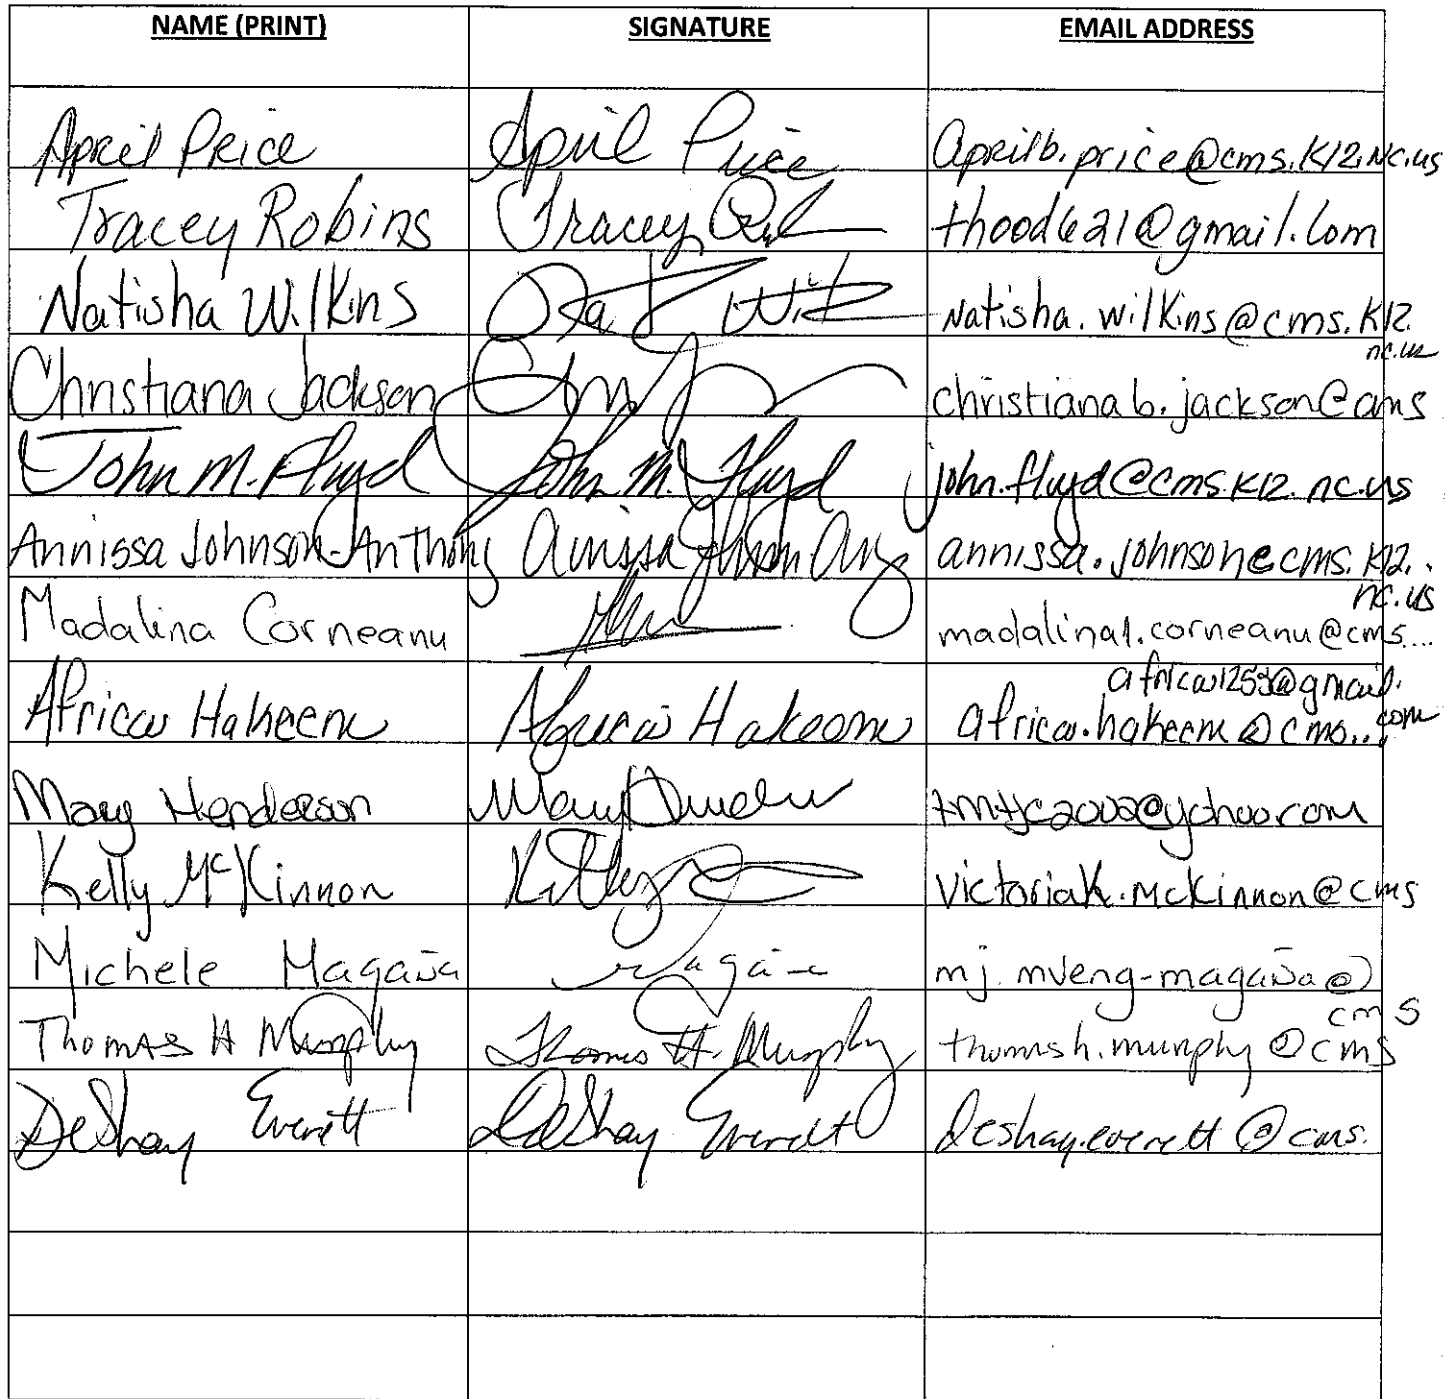 NAME (PRINT) SIGNATURE EMAIL ADDRESS
April Price April Price aprilb.price@cms.k12.nc.us
Tracey Robins Tracey thood621@gmail.com
Natisha Wilkins Natisha.wilkins@cms.k12.
nc.us
Christiana Jackson christianab.jackson@cms
John M. Floyd John M. Floyd john.floyd@cms.k12.nc.us
Annissa Johnson-Anthony Annissa annissa.johnson@cms.k12.
nc.us
Madalina Corneanu madalina1.corneanu@cms....
africa1253@gmail.
Africa Hakeem Africa Hakeem africa.hakeem@cms... com
Mary Henderson Mary tmtjc2002@yahoo.com
Kelly McKinnon Victoriak.mckinnon@cms
Michele Magaña mj.mveng-magaña@
cms
Thomas H Murphy Thomas H. Murphy thomash.murphy@cms
DeShay Everett DeShay Everett deshay.everett@cms.